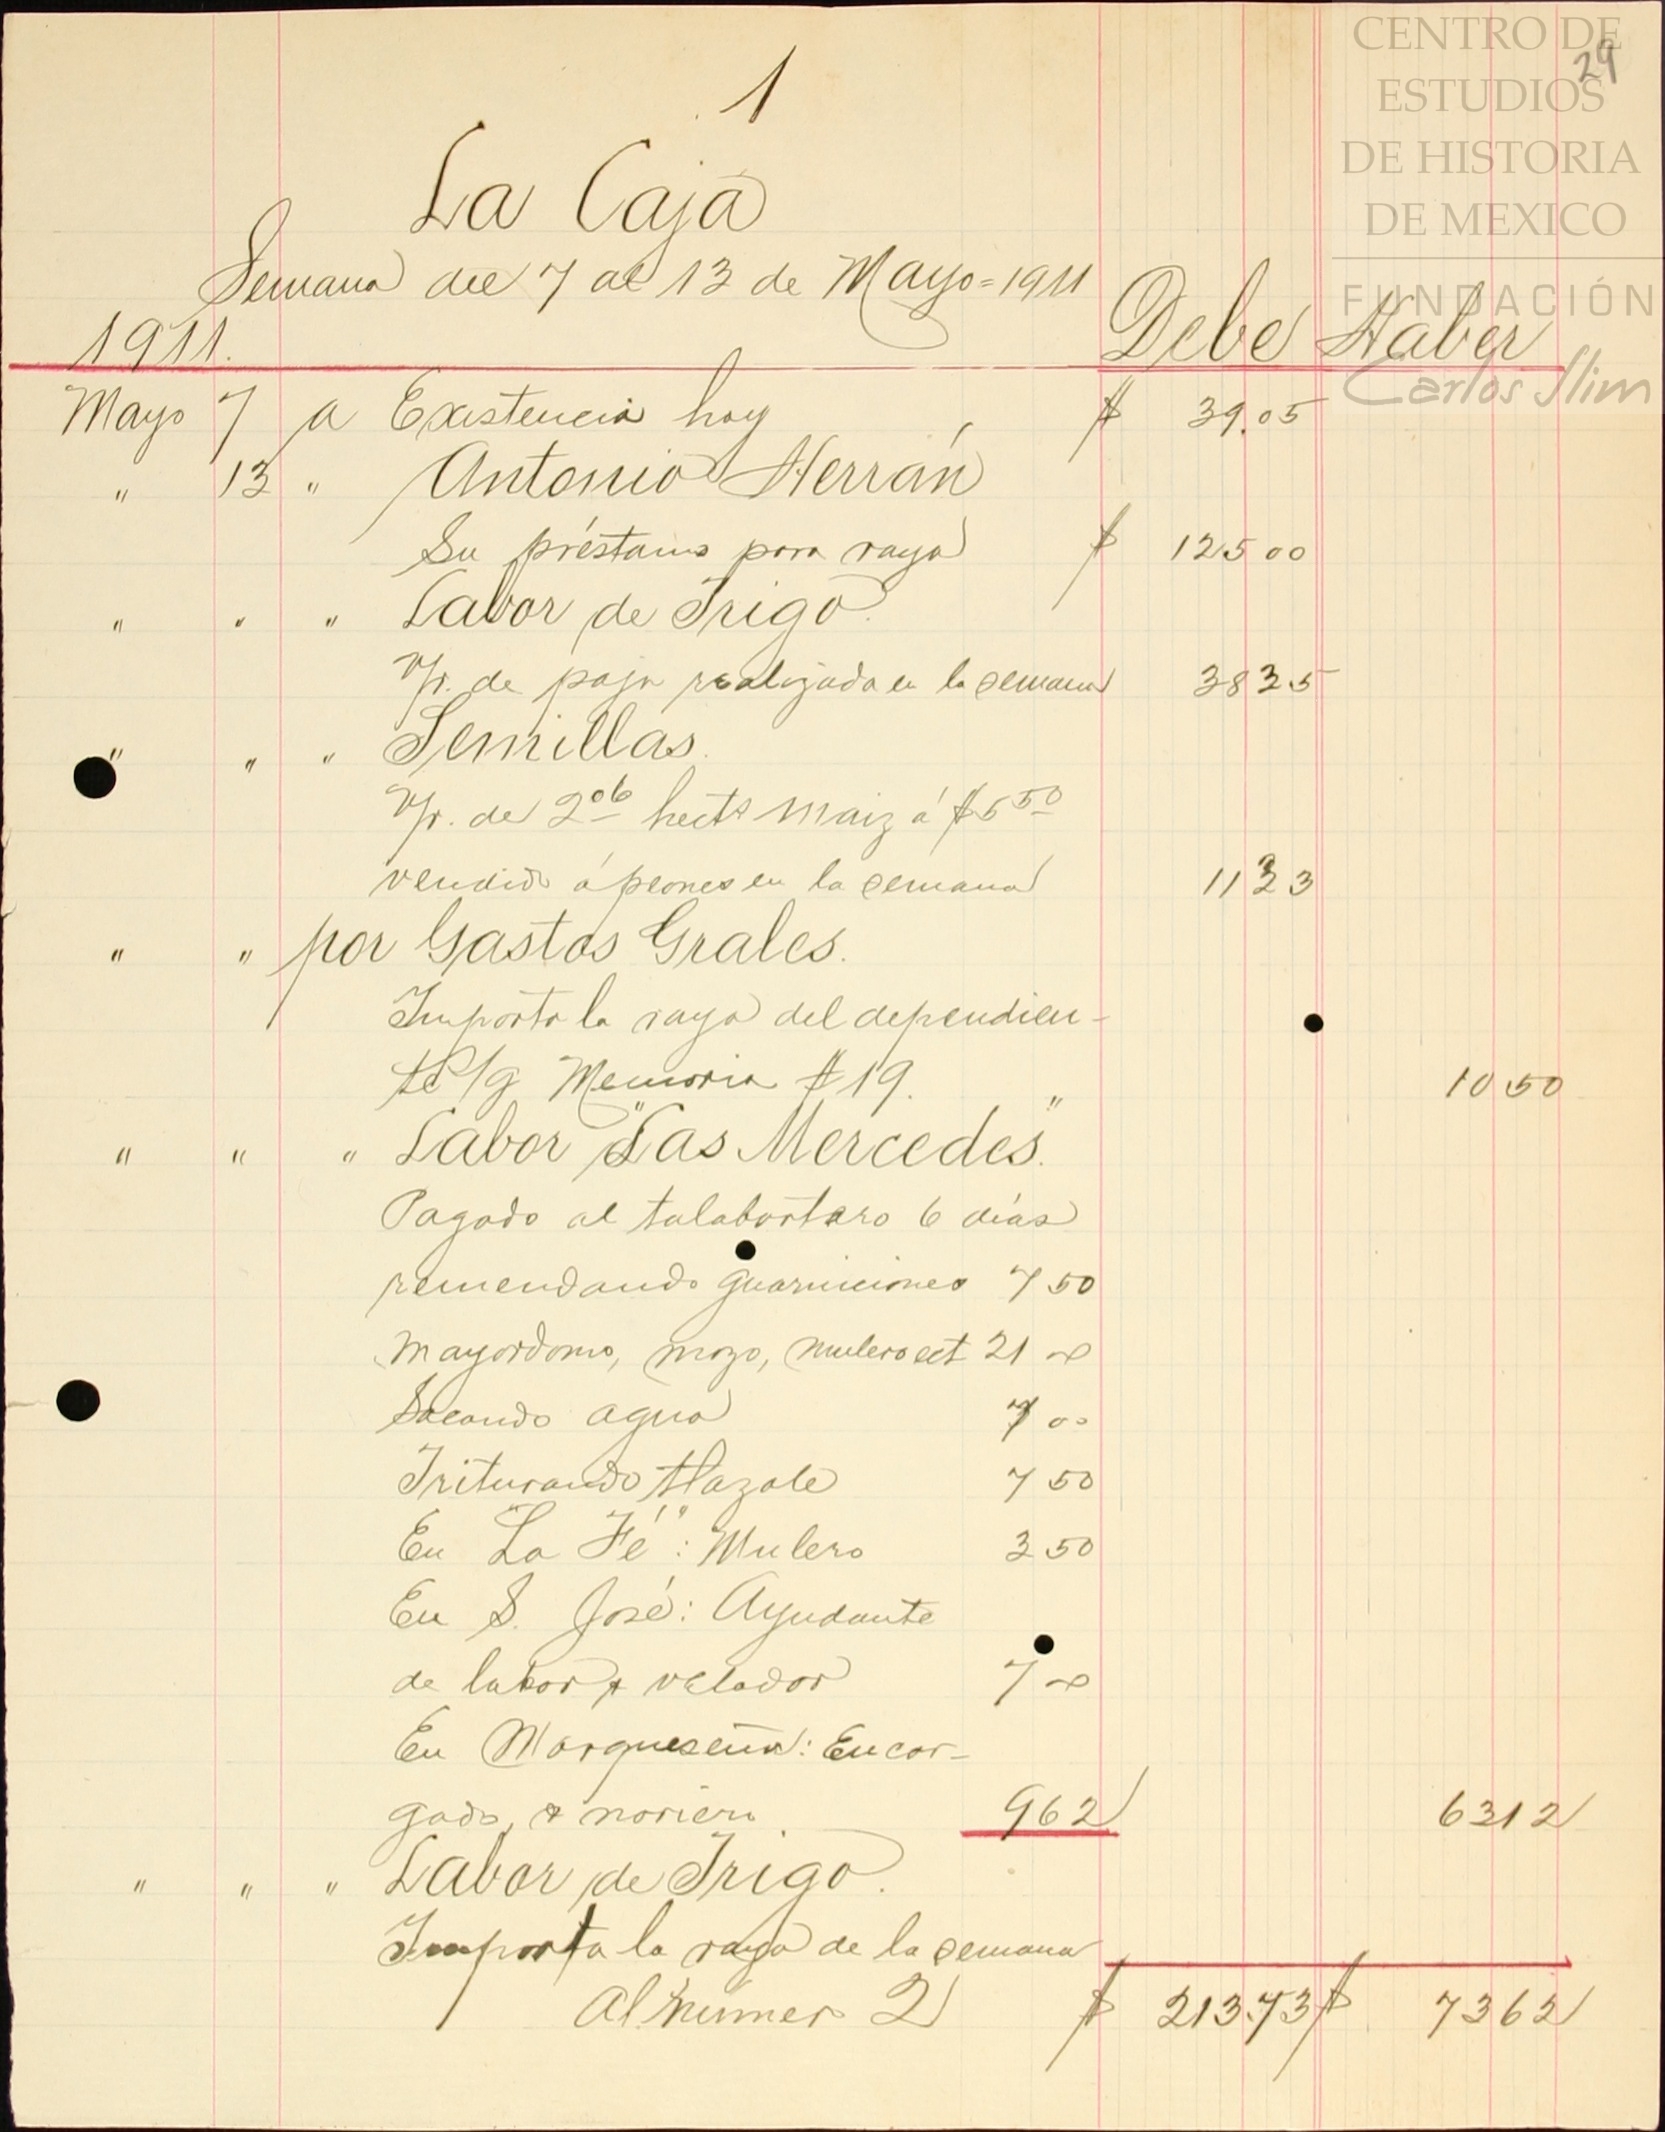 CENTRO DE
ESTUDIOS
DE HISTORIA
DE MEXICO
FUNDACIÓN
Carlos Slim
29
1
La Caja
Semana del 7 al 13 de Mayo=1911
1911. Debe Haber
Mayo 7 a Existencia hoy $ 39.05
" 13 " Antonio Herrán
Su préstamo para raya $ 125 00
" " " Labor de Trigo.
V/r. de paja realizada en la semana 38 25
" " " Semillas.
V/r. de 2 06 hects maiz á $5 50
vendido á peones en la semana 11 33
" " por Gastos Grales.
Importe la raya del dependien-
te s/g Memoria # 19. 10 50
" " " Labor "Las Mercedes".
Pagado al talabartero 6 días
remendando guarniciones 7 50
Mayordomo, mozo, mulero ect 21 00
Sacando agua 7 00
Triturando tlazole 7 50
En "La Fé": Mulero 3 50
En S. José: Ayudante
de labor y velador 7 00
En Marqueseña: Encar-
gado, y noriero 9 62 63 12
" " " Labor de Trigo.
Importa la raya de la semana
Al número 2 $ 213.73 $ 73 62